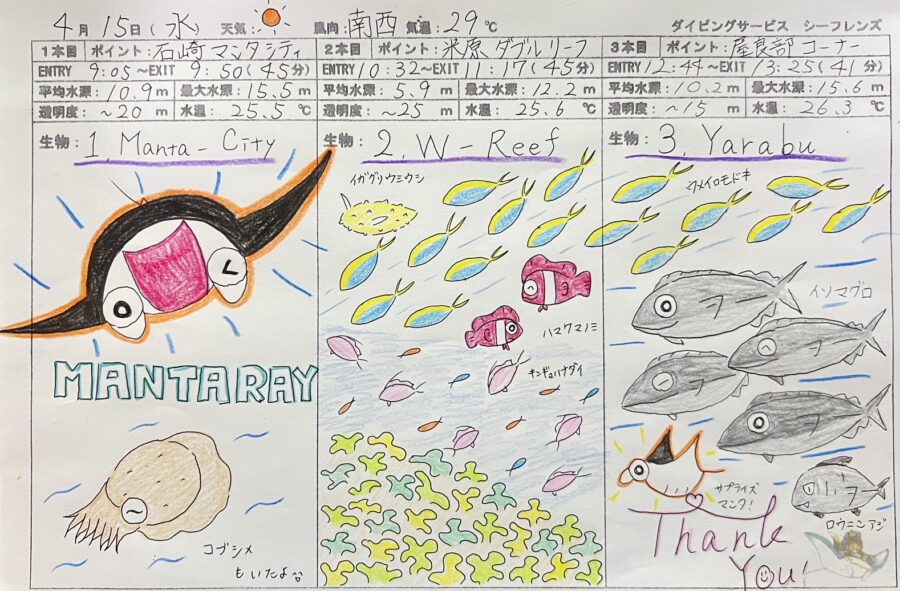 4月15日(水) 天気: 風向:南西 気温:29℃ ダイビングサービス シーフレンズ
1本目 ポイント:石崎マンタシティ
ENTRY 9:05~EXIT 9:50(45分)
平均水深:10.9m 最大水深:15.5m
透明度:~20m 水温:25.5℃
生物:1. Manta-City
MANTARAY
コブシメ
もいたよ
2本目 ポイント:米原 ダブルリーフ
ENTRY 10:32~EXIT 11:17(45分)
平均水深:5.9m 最大水深:12.2m
透明度:~25m 水温:25.6℃
生物:2. W-Reef
イガグリウミウシ
ハマクマノミ
キンギョハナダイ
3本目 ポイント:屋良部コーナー
ENTRY 12:44~EXIT 13:25(41分)
平均水深:10.2m 最大水深:15.6m
透明度:~15m 水温:26.3℃
生物:3. Yarabu
ウメイロモドキ
イソマグロ
サプライズ
マンタ!
ロウニンアジ
Thank
You!